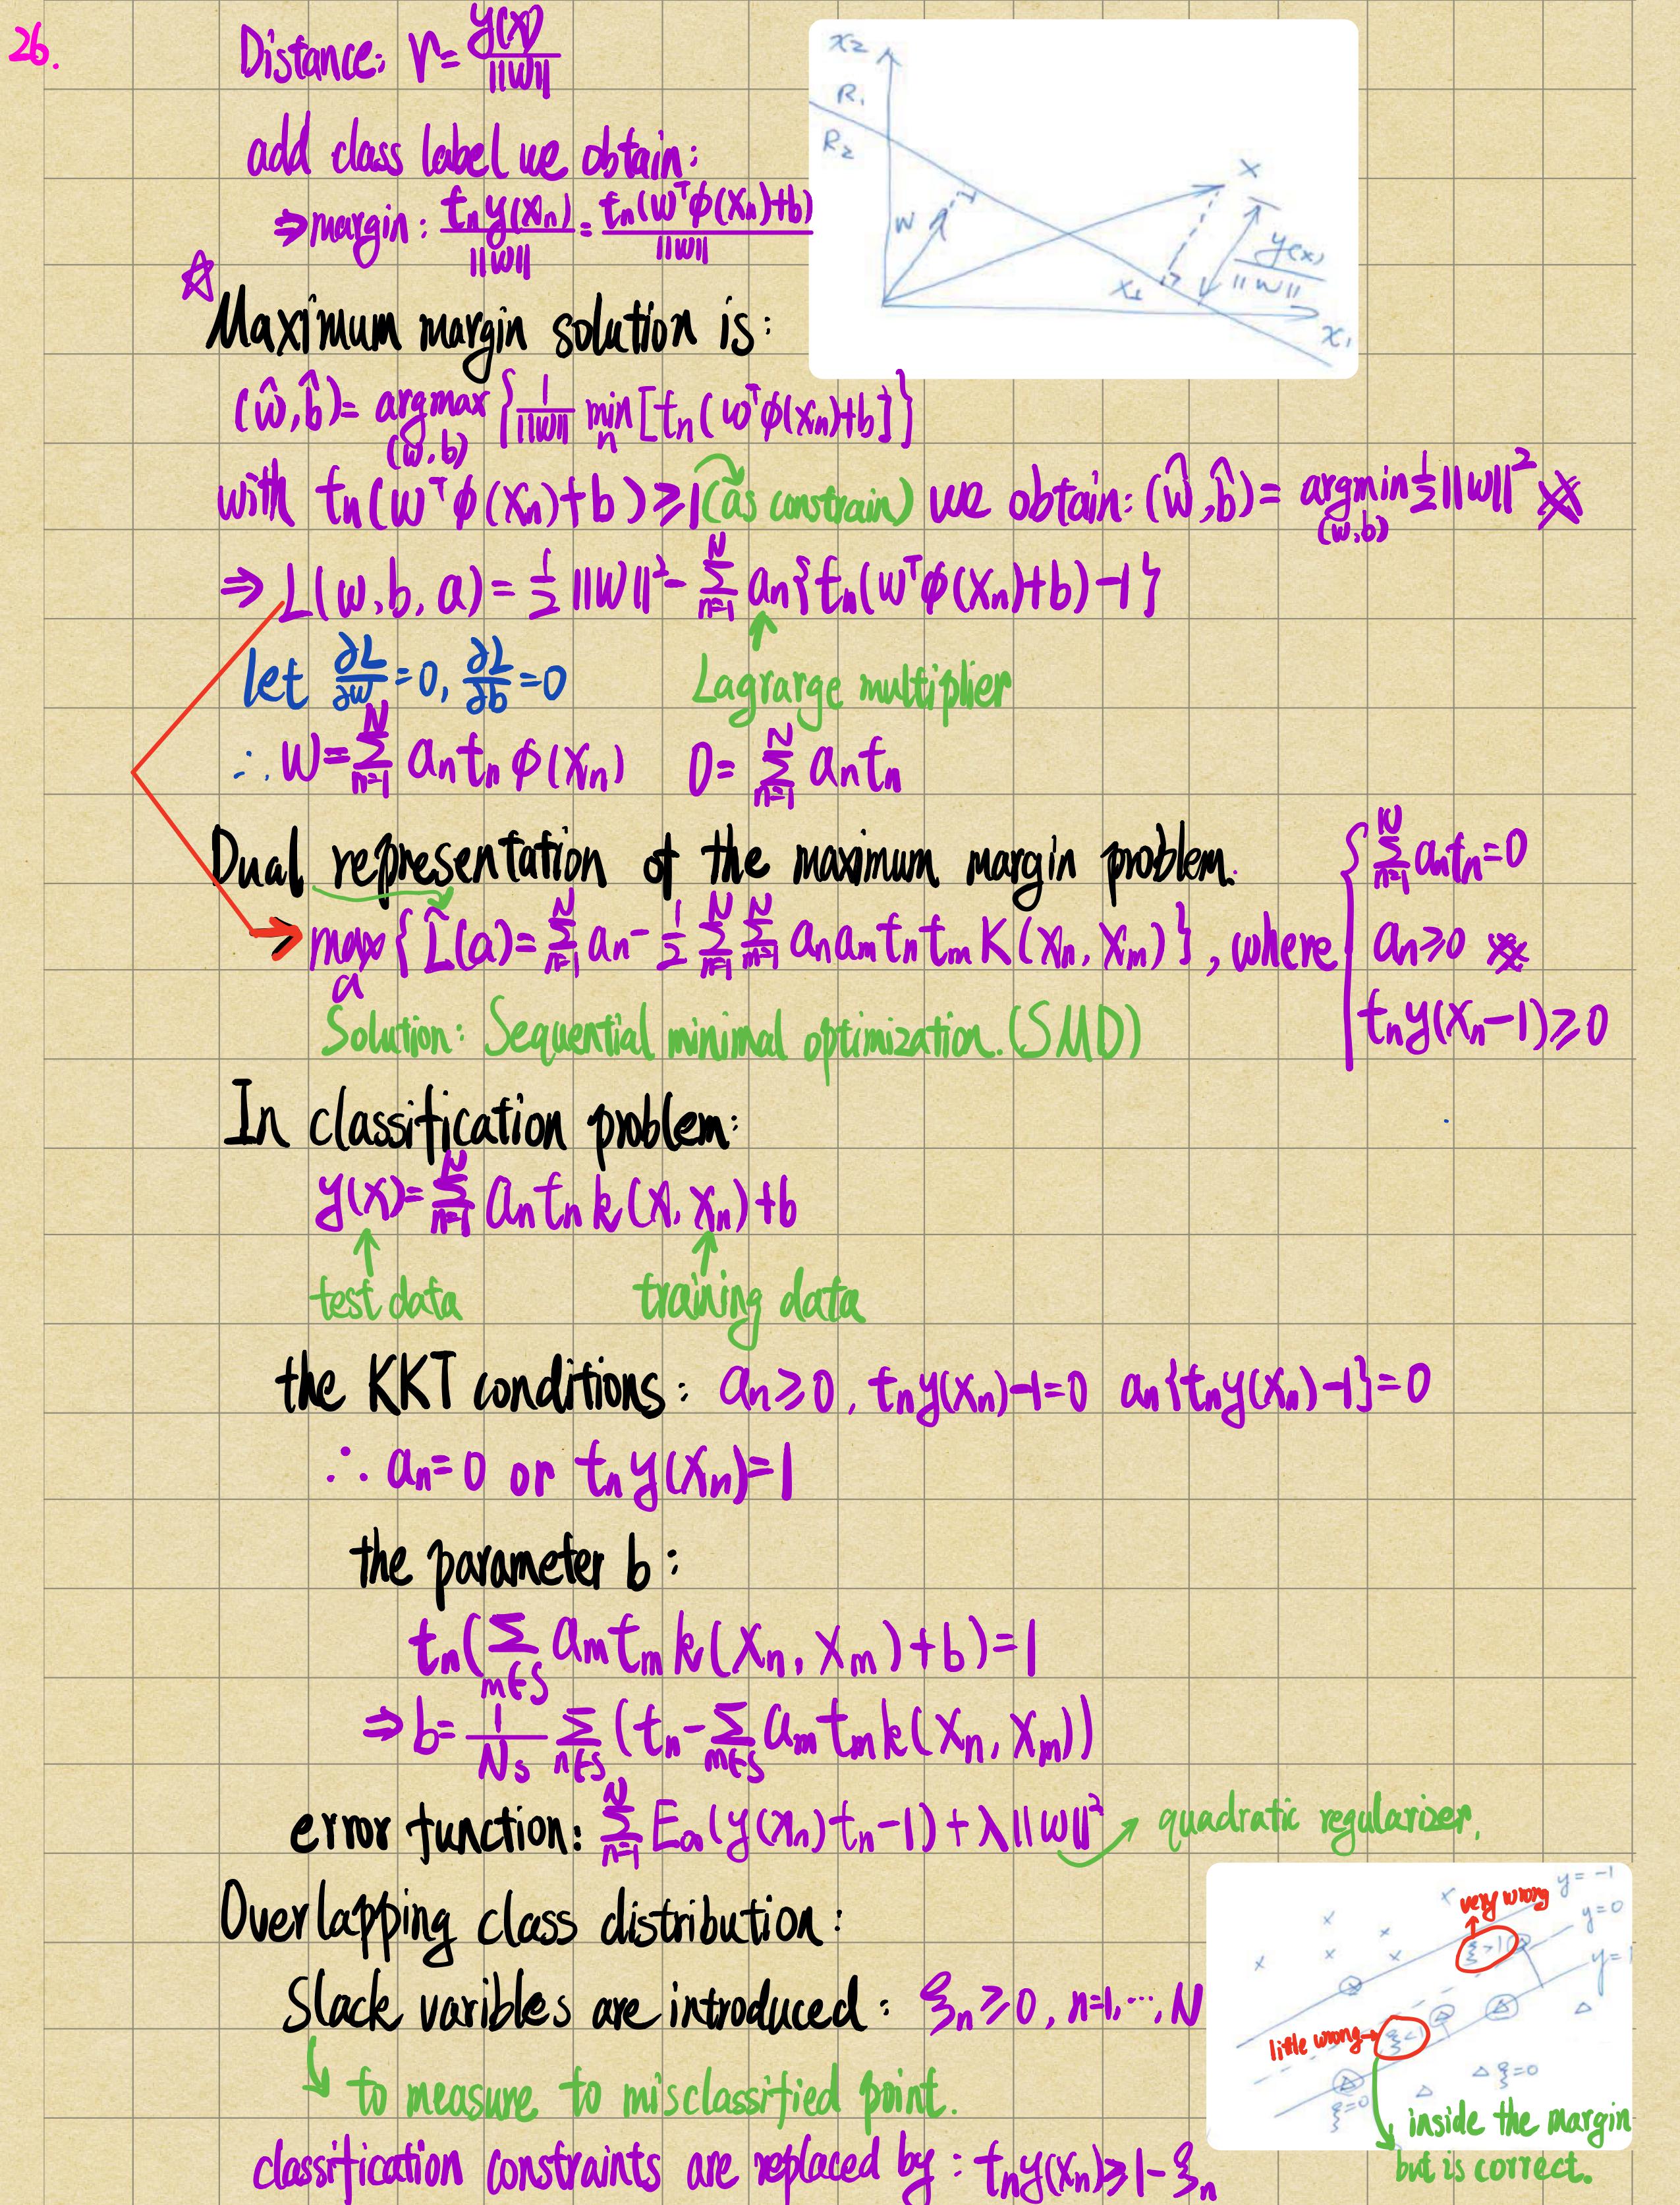 26.
Distance: r = y(x)/||w||
add class label we obtain:
⇒ margin: tₙy(xₙ)/||w|| = tₙ(wᵀϕ(xₙ)+b)/||w||
x₂
R₁
R₂
w
x
x⊥
y(x)/||w||
x₁
☆ Maximum margin solution is:
(ŵ,b̂) = argmax_(w,b) {1/||w|| min_n [tₙ(wᵀϕ(xₙ)+b]}
with tₙ(wᵀϕ(xₙ)+b) ≥ 1 (as constrain) we obtain: (ŵ,b̂) = argmin_(w,b) ½||w||²
⇒ L(w,b,a) = ½||w||² - Σ_{n=1}^N aₙ{tₙ(wᵀϕ(xₙ)+b)-1}
let ∂L/∂w = 0, ∂L/∂b = 0
Lagrarge multiplier
∴ w = Σ_{n=1}^N aₙtₙϕ(xₙ) 0 = Σ_{n=1}^N aₙtₙ
Dual representation of the maximum margin problem.
max_a {L̃(a) = Σ_{n=1}^N aₙ - ½ Σ_{n=1}^N Σ_{m=1}^N aₙaₘtₙtₘK(xₙ,xₘ)}, where { Σ_{n=1}^N aₙtₙ=0
aₙ≥0
tₙy(xₙ-1)≥0
Solution: Sequential minimal optimization. (SMD)
In classification problem:
y(x) = Σ_{n=1}^N aₙtₙk(x,xₙ)+b
test data training data
the KKT conditions: aₙ≥0, tₙy(xₙ)-1=0 aₙ{tₙy(xₙ)-1}=0
∴ aₙ=0 or tₙy(xₙ)=1
the parameter b:
tₙ(Σ_{m∈S} aₘtₘk(xₙ,xₘ)+b)=1
⇒ b = 1/N_S Σ_{n∈S} (tₙ-Σ_{m∈S} aₘtₘk(xₙ,xₘ))
error function: Σ_{n=1}^N E_∞(y(xₙ)tₙ-1)+λ||w||² → quadratic regularizer.
Overlapping class distribution:
Slack varibles are introduced: ξₙ≥0, n=1,…,N
to measure to misclassified point.
classification constraints are replaced by: tₙy(xₙ)≥1-ξₙ
y=-1
very wrong
y=0
ξ>1
y=
little wrong→
ξ<1
ξ=0
ξ=0
inside the margin
but is correct.